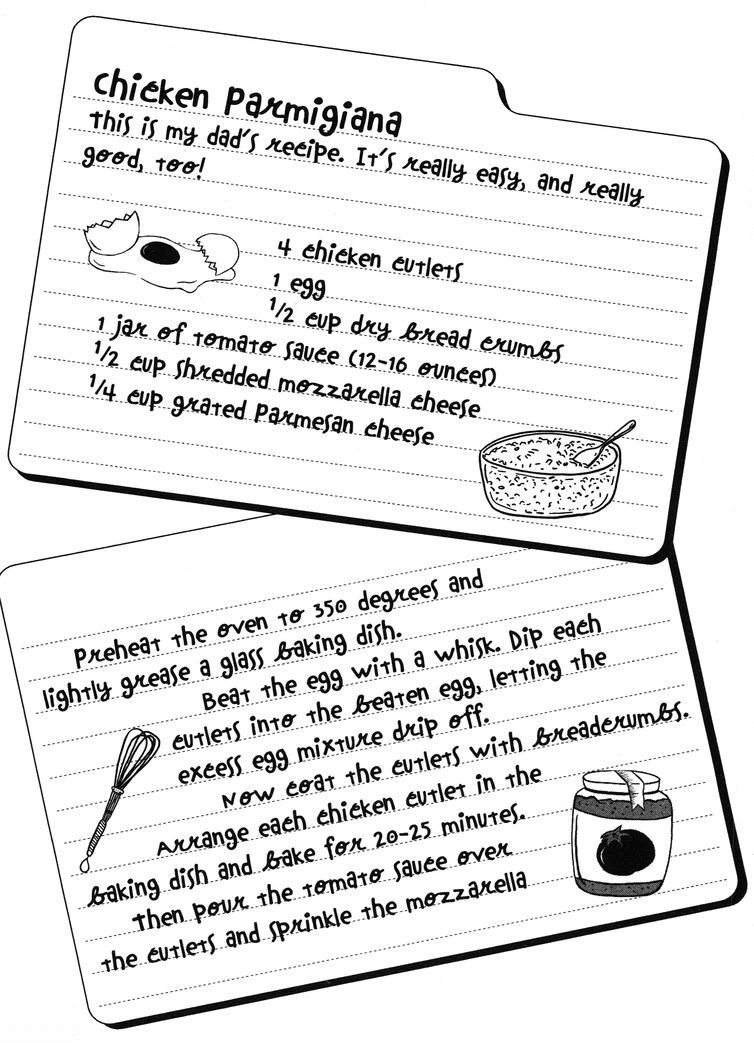 Chicken Parmigiana
This is my dad's recipe. It's really easy, and really
good, too!
4 chicken cutlets
1 egg
1/2 cup dry bread crumbs
1 jar of tomato sauce (12-16 ounces)
1/2 cup shredded mozzarella cheese
1/4 cup grated Parmesan cheese
Preheat the oven to 350 degrees and
lightly grease a glass baking dish.
Beat the egg with a whisk. Dip each
cutlets into the beaten egg, letting the
excess egg mixture drip off.
Now coat the cutlets with breadcrumbs.
Arrange each chicken cutlet in the
baking dish and bake for 20-25 minutes.
Then pour the tomato sauce over
the cutlets and sprinkle the mozzarella